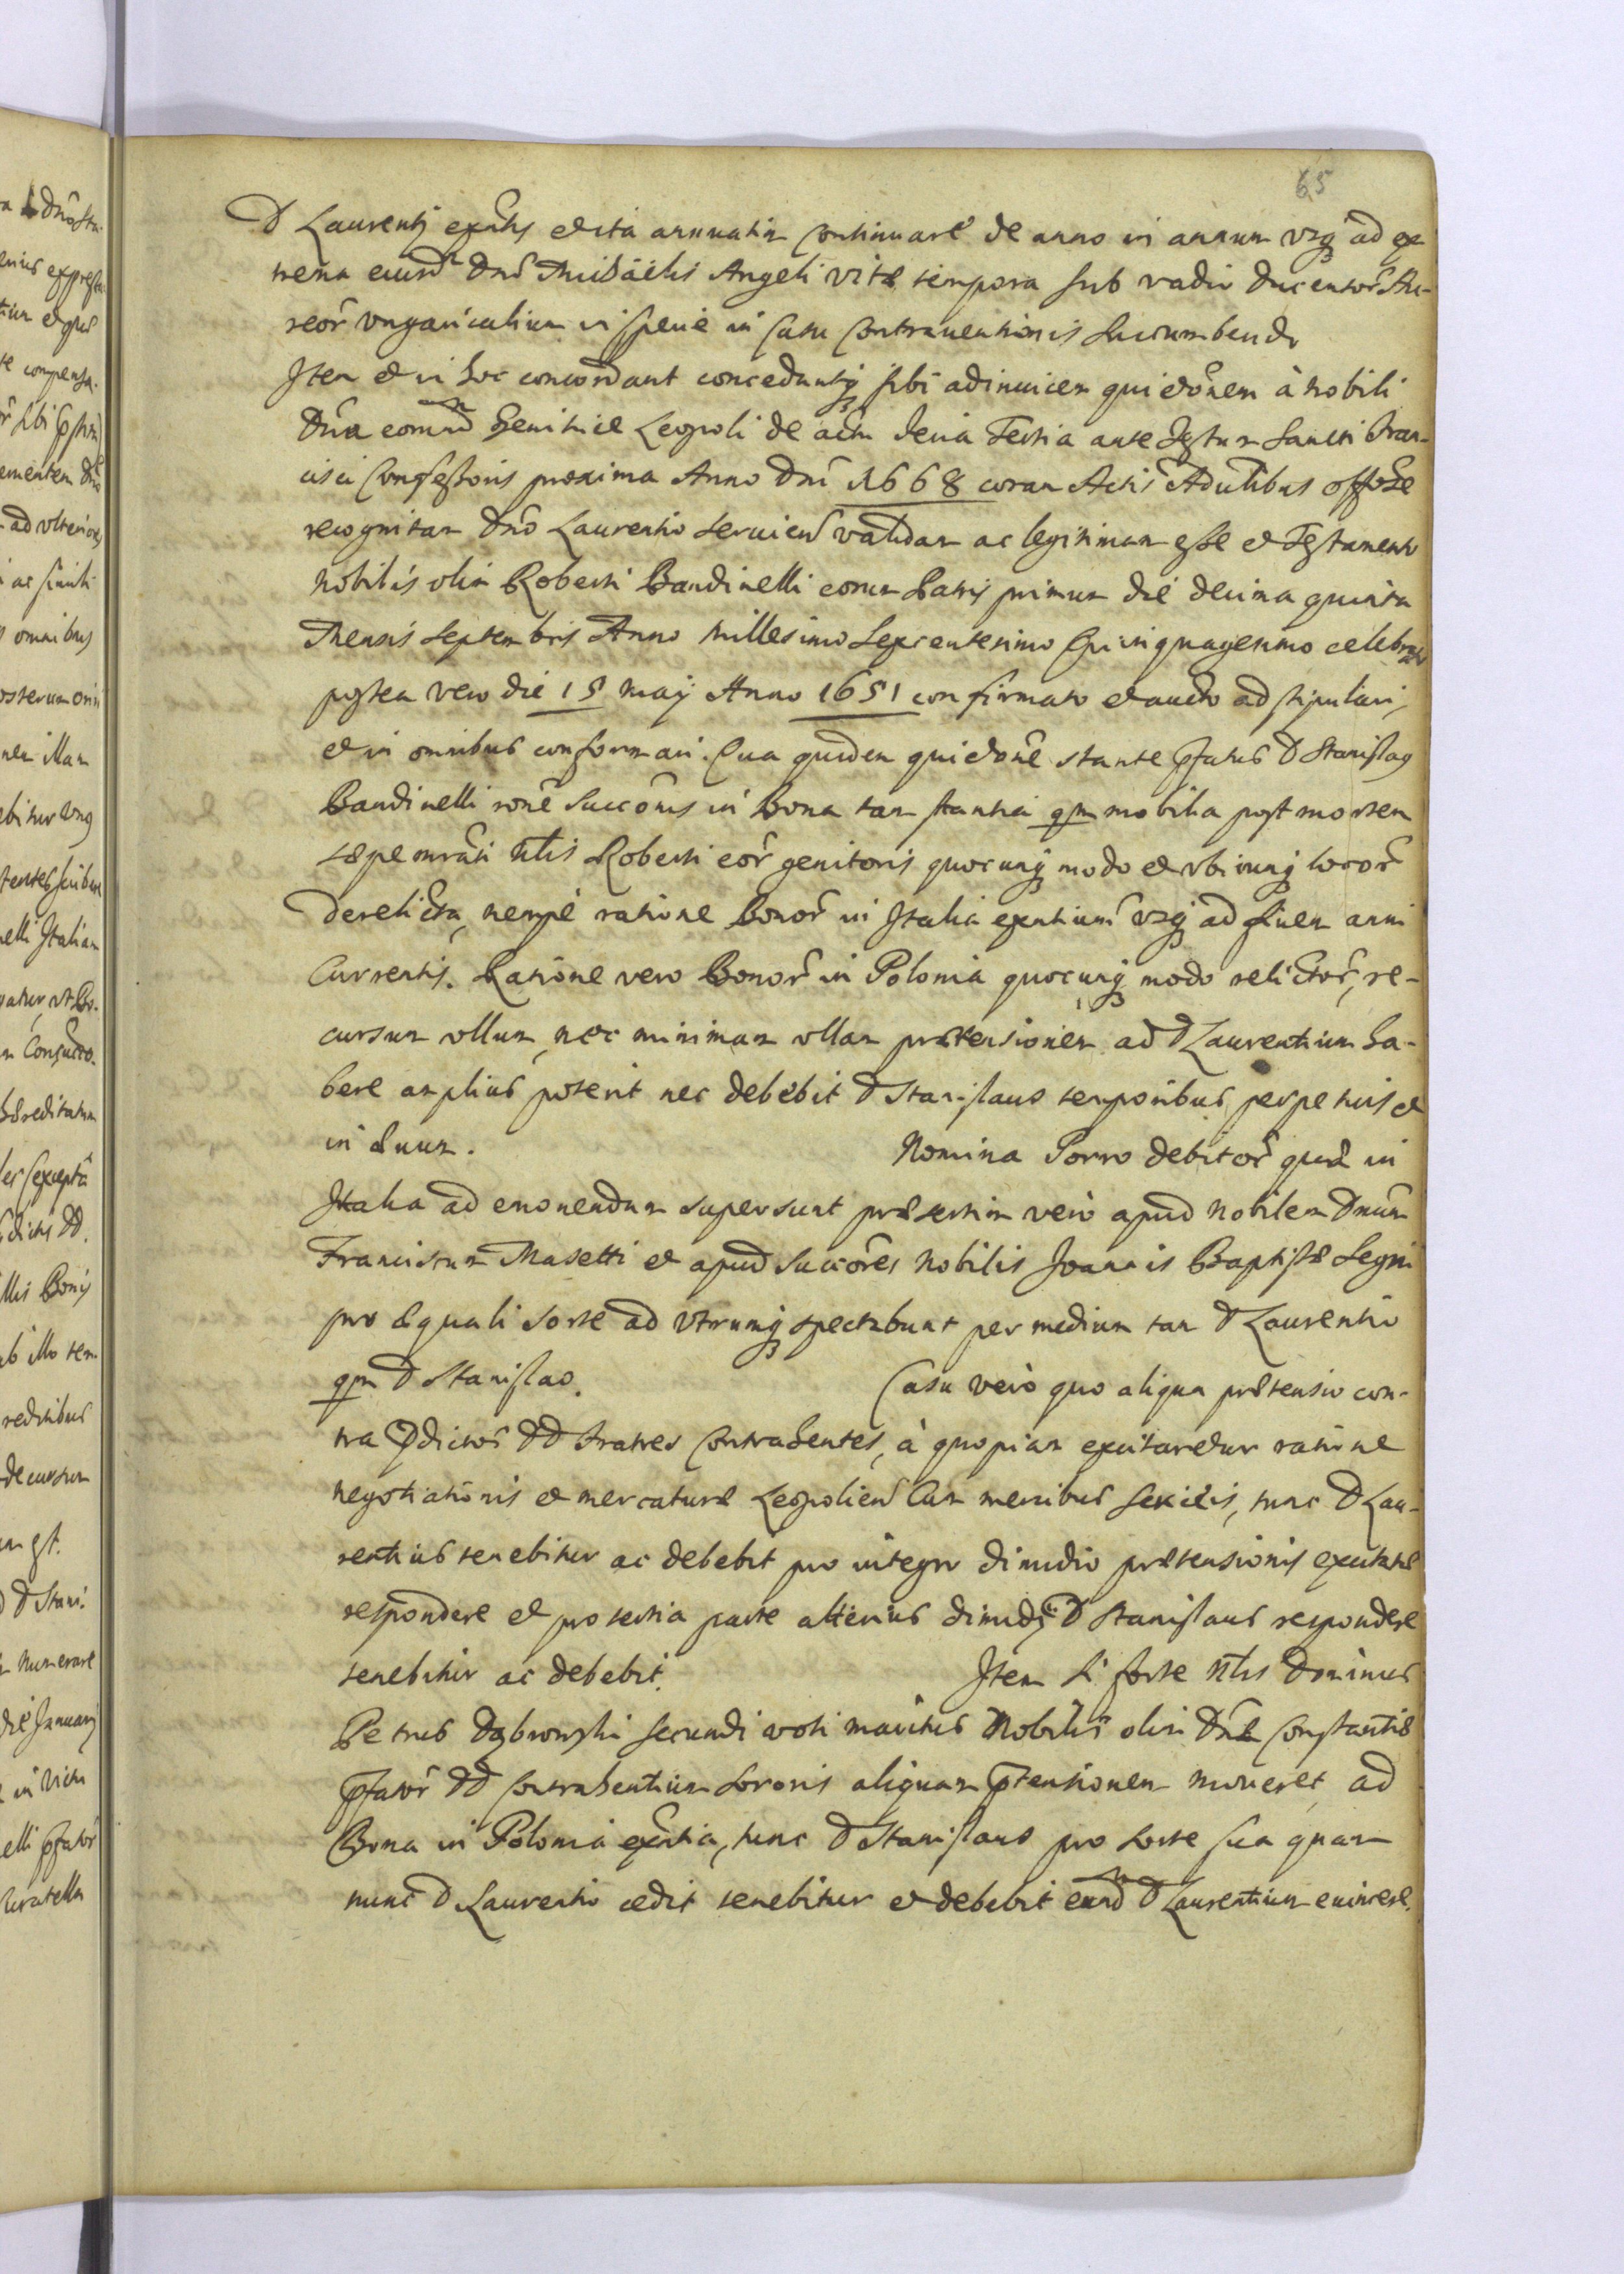 65
D Laurentij exntis et ita annuatim continuare de anno in annum vsq ad ex
trema eiusd Dni Michäelis Angeli vitæ tempora sub vadio ducentor Au-
reor vngaricalium in specie in casu contrauentionis succumbendo
Item et in hoc concordant conceduntq sibi adinuicem quietonem à nobili
Dna eorund Genitrice Leopoli de actu feria Tertia ante festum Sancti Fran-
cisci Confessoris proxima Anno Dni 1668 coram Actis Adulibus
recognitam Dno Laurentio seruien validam ac legitimam esse et Testamento
Nobilis olim Roberti Bandinelli eorum Patris primum die decima quinta
Mensis Septembris Anno Millesimo Sexcentesimo Quinquagesimo celebrato
postea vero die 15 maij Anno 1651 confirmato et aucto ad stipulari,
et in omnibus conformari. Qua quidem quietone stante pfatus D Stanislaus
Bandinelli rone succonis in bona tam stantia qm mobilia post mortem
sæpe mrati nlis Roberti eor genitoris quocunq modo et vbicunq locor
derelicta, nempè ratione bonor in Italia exntium vsq ad finem anni
Currentis. Ratione vero Bonor in Polonia quocunq modo relictor, re-
cursum vllum, nec minimam vllam prætensionem ad D Laurentium ha-
bere amplius poterit nec debebit D Stanislaus temporibus perpetuis et
in æuum. Nomina Porro debitor quæ in
Italia ad emonendum supersunt præsertim verò apud Nobilem Dnum
Franciscum Masetti et apud succores Nobilis Joannis Baptistæ Segni
pro æquali sorte ad vtrumq spectabunt per medium tam D Laurentio
qm D Stanislao. Casu verò quo aliqua prætensio con-
tra pdictos DD Fratres Contrahentes, à quopiam excitaretur ratione
negotiationis et mercaturæ Leopolien Cum mercibus sericeis, tunc D Lau-
rentius tenebitur ac debebit pro integro dimidio prætensionis excitatæ
respondere et pro tertia parte alterius dimidij D Stanislaus respondere
tenebitur ac debebit. Item si forte Nlis Dominus
Petrus Dąbrowski secundi voti maritus Nobilis olim Dnæ Constantiæ
pfator DD Contrahentium sororis aliquam ptensionem moueret ad
Bona in Polonia exntia, tunc D Stanislaus pro sorte sua quam
nunc D Laurentio cedit tenebitur et debebit eund D Laurentium euincere.